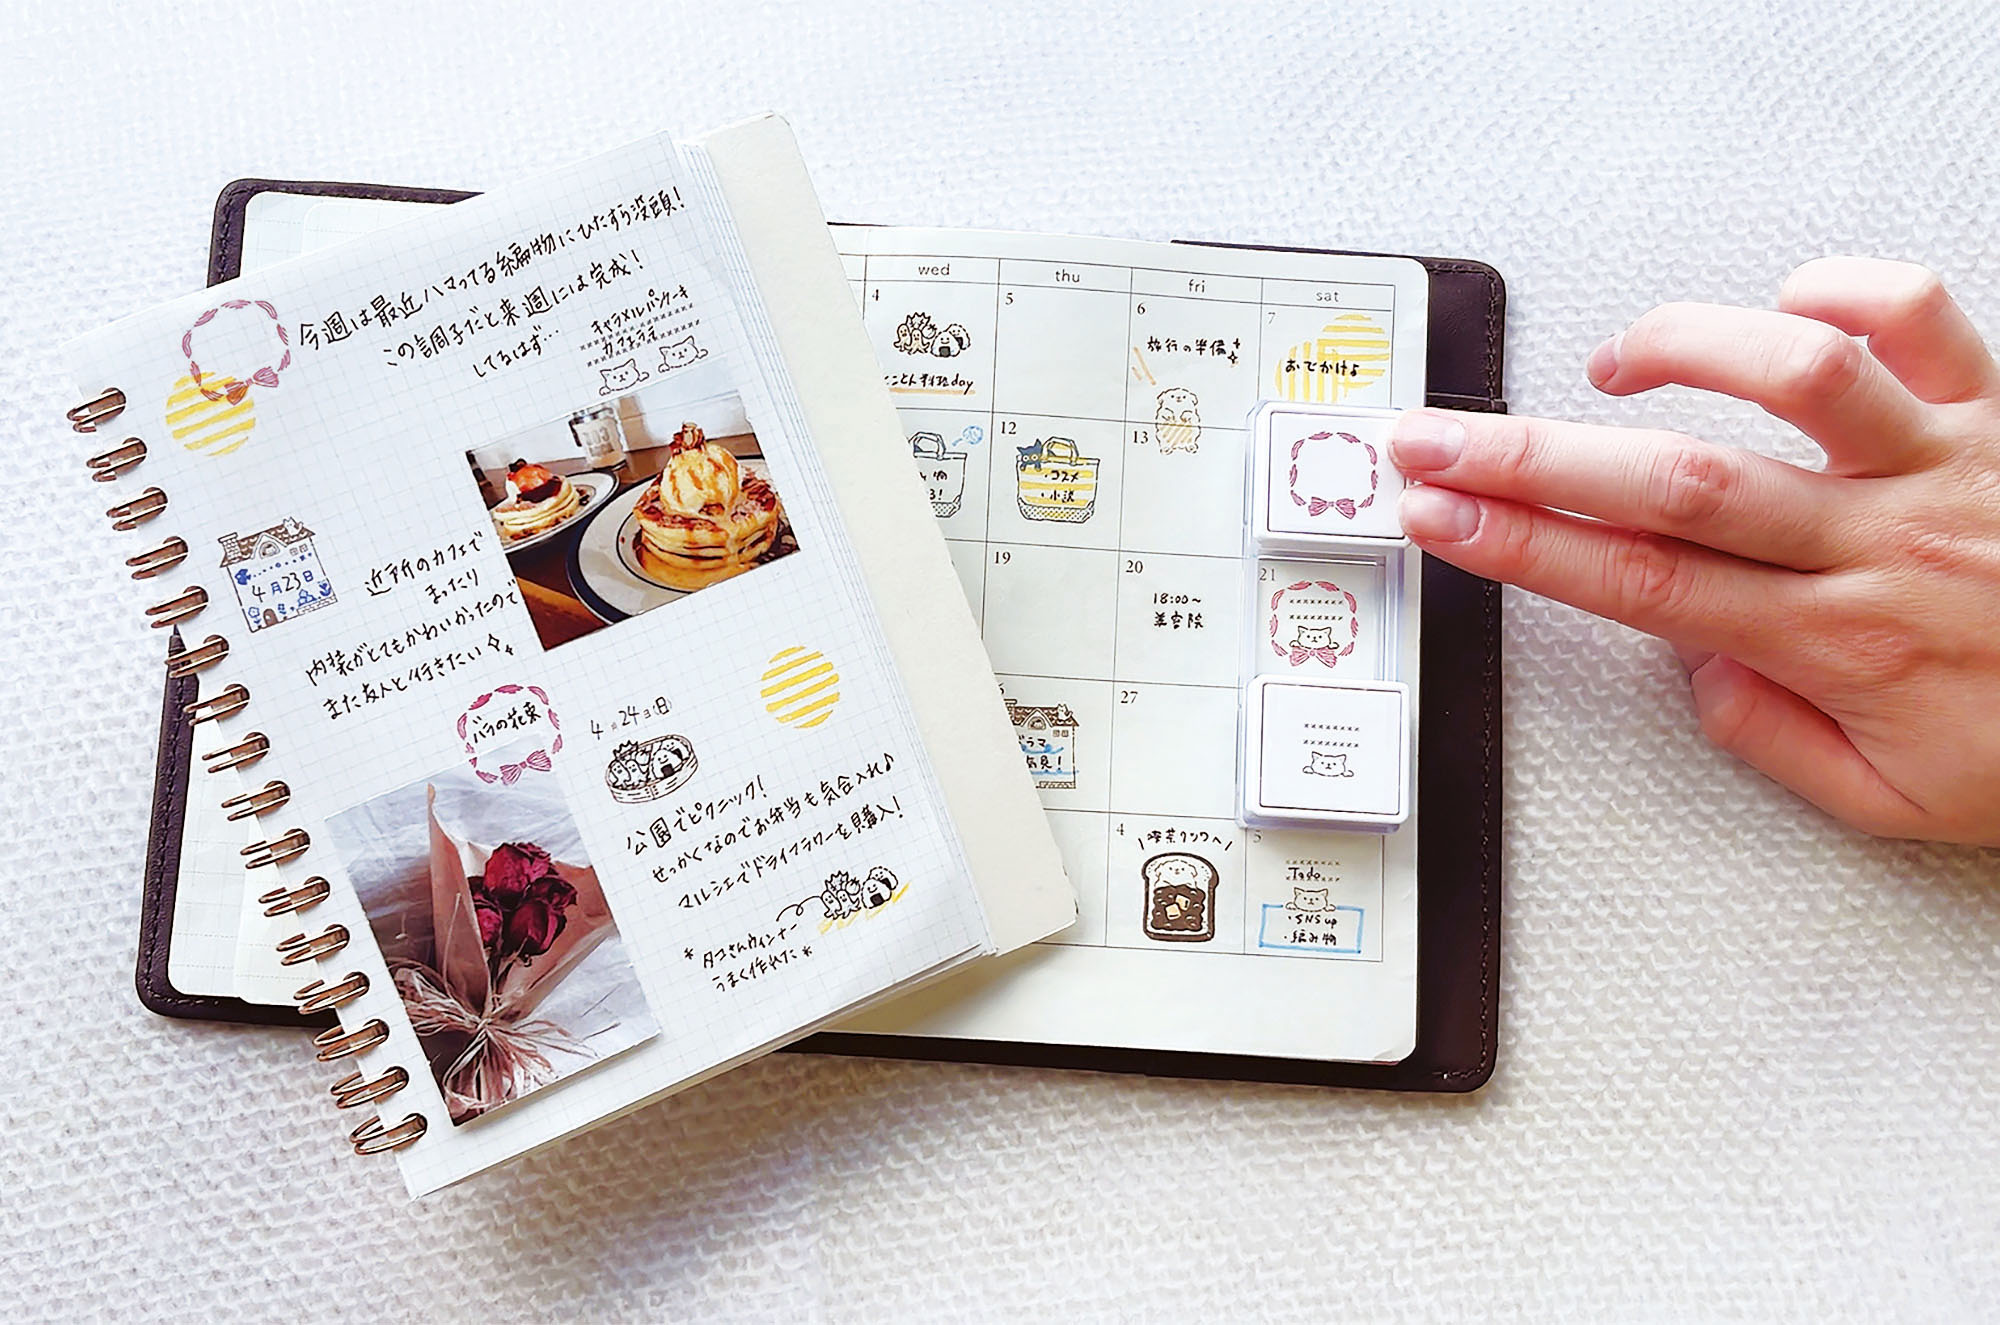 今週は最近ハマってる編物にひたすら没頭!
この調子だと来週には完成!
してるはず…
キャラメルパンケーキ
カフェラテ
4月23日
近所のカフェで
まったり
内装がとてもかわいかったので
また友人と行きたい
バラの花束
4月24日(日)
公園でピクニック!
せっかくなのでお弁当も気合入れ♪
マルシェでドライフラワーを購入!
*タコさんウィンナー
うまく作れた*
wed
thu
fri
sat
4
5
6
7
とことん料理day
旅行の準備
おでかけ♪
12
13
・コスメ
・小説
19
20
21
18:00～
美容院
27
ドラマ
発見!
4
5
Todo
・SNS up
・編み物